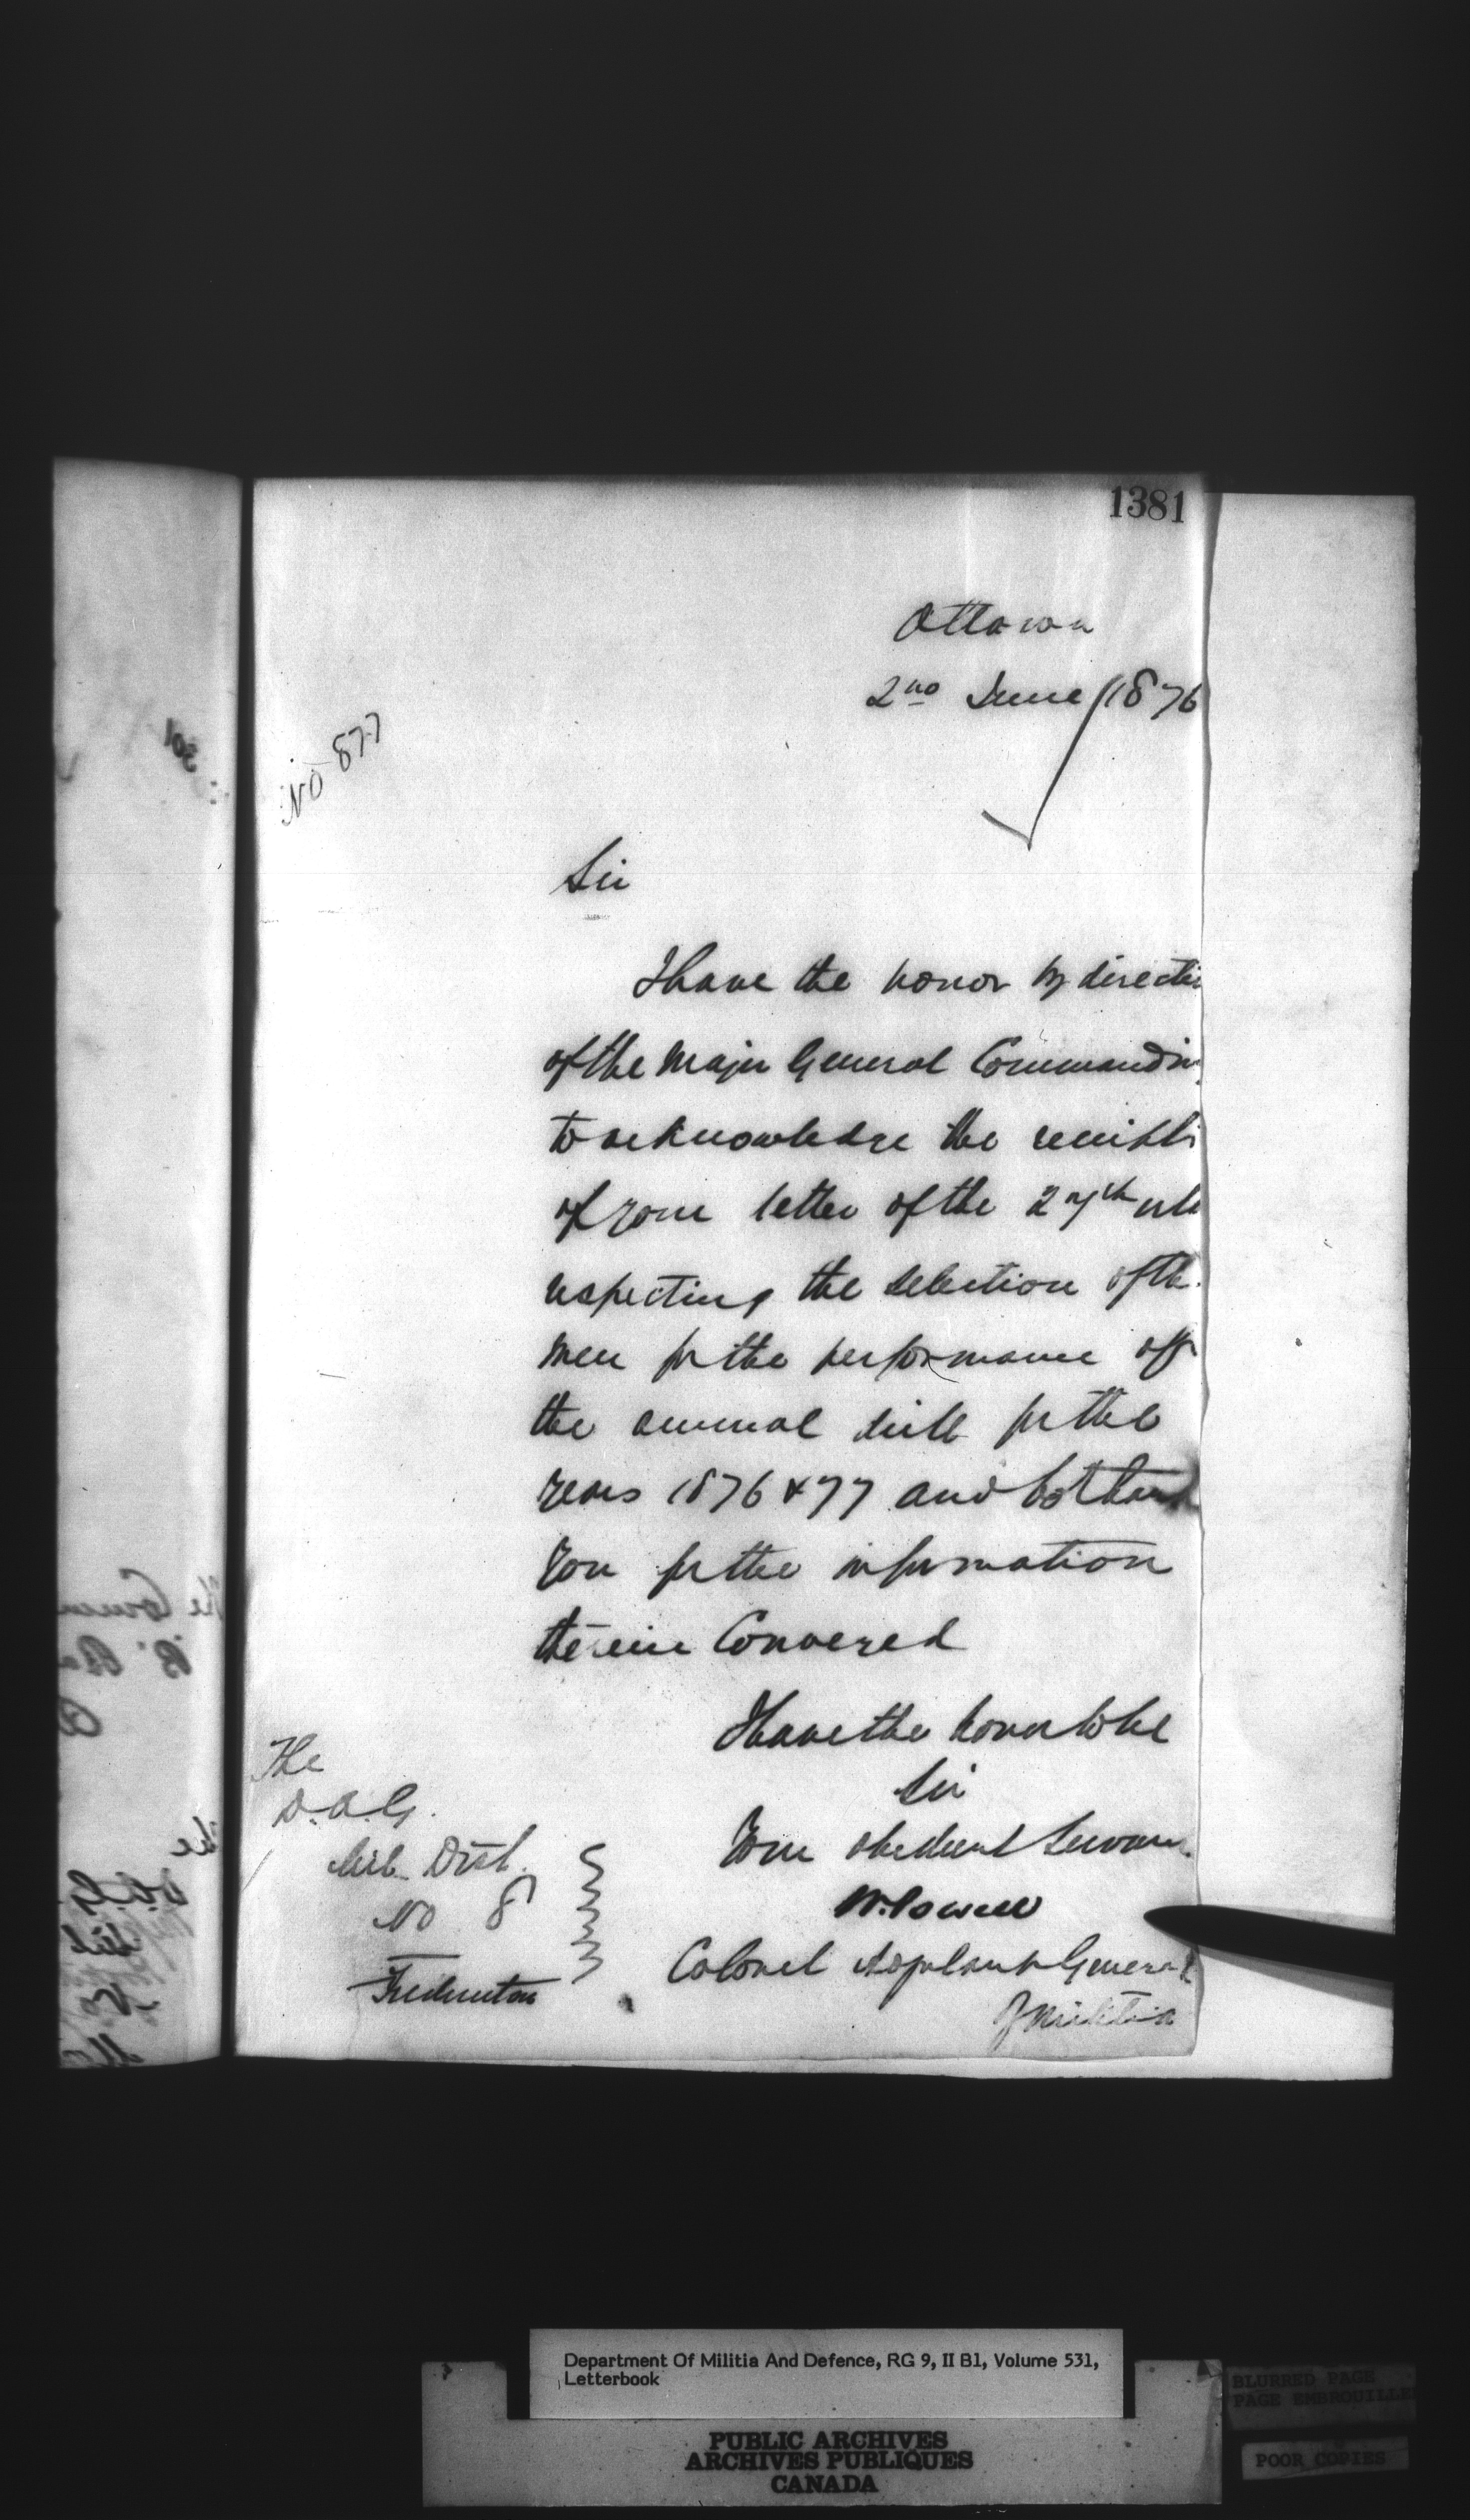 1381
Ottawa
2nd June /1876
No 877
Sir
I have the honor by directi
of the Major General Commandin
to acknowledge the receipt
of your letter of the 27th ult
respecting the selection of the
men for the performance of
the annual drill for the
years 1876 & 77 and to thank
you for the information
therein Conveyed
I have the honor to be
Sir
Your obedient Servan
W. Powell
Colonel Adjutant General
of Militia
The
D.A.G.
Mil. Dist.
No 8
Fredericton
Department Of Militia And Defence, RG 9, II B1, Volume 531,
Letterbook
PUBLIC ARCHIVES
ARCHIVES PUBLIQUES
CANADA
BLURRED PAGE
PAGE EMBROUILLE
POOR COPIES